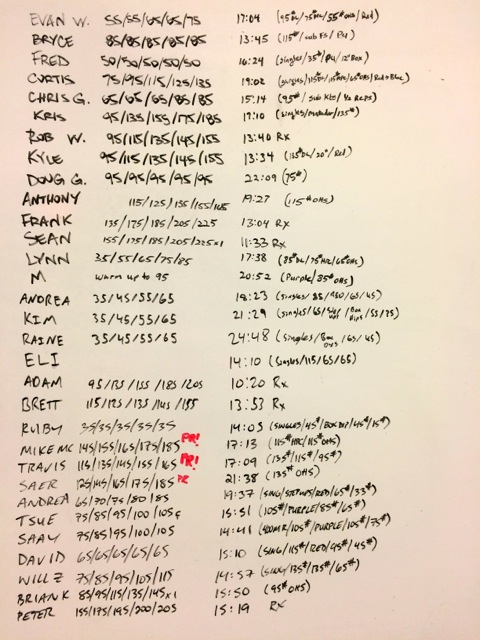 EVAN W. 55/55/65/65/75 17:04 (95#DL/75#HPC/55#OHS/Red)
BRYCE 85/85/85/85/85 13:45 (115#/sub FS/PU)
FRED 50/50/50/50/50 16:24 (singles/35#/PU/12"Box)
CURTIS 75/95/115/125/135 19:02
CHRIS G. 65/65/65/85/85 15:14 (95#/Sub KBs/ 1/2 Reps)
KRIS 95/135/155/175/185 19:10 (singles/ /135#)
ROB W. 95/115/135/145/155 13:40 Rx
KYLE 95/115/135/145/155 13:34 (135#DL/20"/Red)
DOUG G. 95/95/95/95/95 22:09 (75#)
ANTHONY 115/125/135/155/165 19:27 (115#OHS)
FRANK 135/175/185/205/225 13:04 Rx
SEAN 155/175/185/205/225x1 11:33 Rx
LYNN 35/55/65/75/85 17:38 (85#DL/75#HPC/65#OHS)
M warm up to 95 20:52 (Purple/85#OHS)
ANDREA 35/45/55/65 18:23 (singles/85/ /65/45)
KIM 35/45/55/65 21:29 (singles/65/ /Box Dips/55/35)
RAINE 35/45/55/65 24:48 (singles/Box Dips/65/45)
ELI 14:10 (singles/115/65/65)
ADAM 95/135/155/185/205 10:20 Rx
BRETT 115/125/135/145/155 13:53 Rx
RUBY 35/35/35/35/35 14:05 (SINGLES/45#/BOX DIP/45#/15#)
MIKE MC 145/155/165/175/185 PR! 17:13 (115#HPC/115#OHS)
TRAVIS 115/135/145/155/165 PR! 17:09 (135#/115#/95#)
SAER 125/145/165/175/185 PR 21:38 (135# OHS)
ANDREA 65/70/75/80/85 19:37 (SING/STEPUPS/RED/65#/33#)
TSUE 75/85/95/100/105 15:51 (105#/PURPLE/85#/65#)
SAAY 75/85/95/100/105 14:41 (400MR/105#/PURPLE/105#/75#)
DAVID 65/65/65/65/65 15:10 (SING/115#/RED/95#/45#)
WILL Z 75/85/95/105/115 14:57 (SING/135#/135#/65#)
BRIAN K 85/95/115/135/145x1 15:50 (95#OHS)
PETER 155/175/195/200/205 15:19 RX